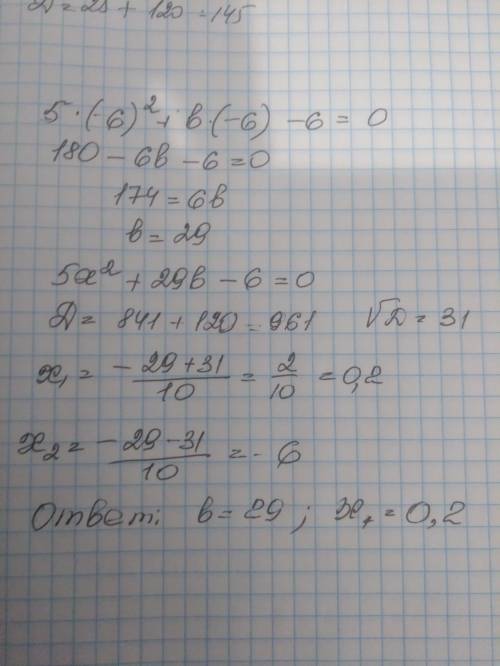 D = 25 + 120 = 145
5·(-6)² + b·(-6) - 6 = 0
180 - 6b - 6 = 0
174 = 6b
b = 29
5x² + 29b - 6 = 0
D = 841 + 120 = 961 √D = 31
x₁ = (-29+31)/10 = 2/10 = 0,2
x₂ = (-29-31)/10 = -6
Ответ: b = 29; x₁ = 0,2